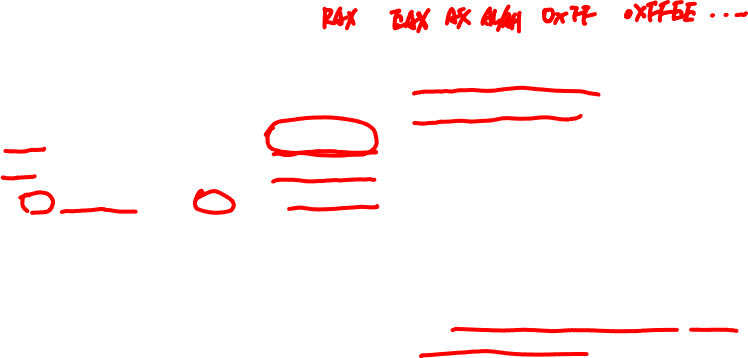 RAX EAX AX AL/AH 0xFF 0xFFEE ...